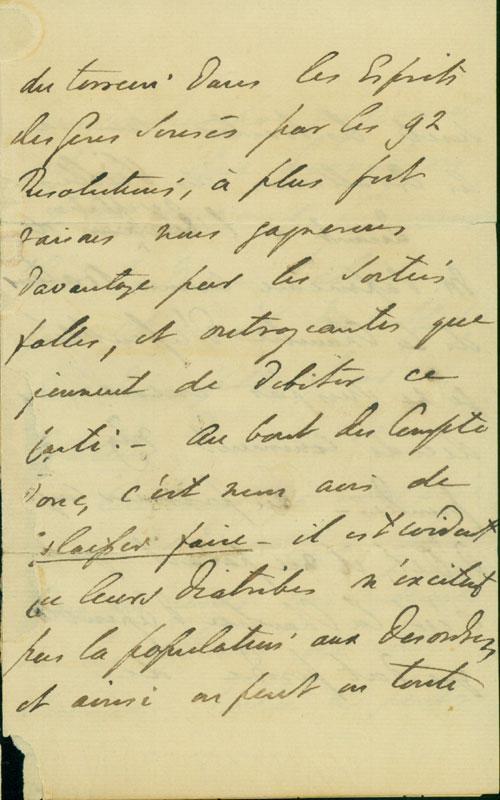 du terrein dans les Esprits
des Gens sensés par les 92
Resolutions, à plus fort
raisons nous gagnerons
davantage par les sorties
folles, et outrageantes que
viennent de debiter ce
parti: - Au bout des Compte
Donc, c'est mon avis de
laisser faire - il est evident
que leurs diatribes n'excitent
pas la population aux desordres
et ainsi on peut en toute